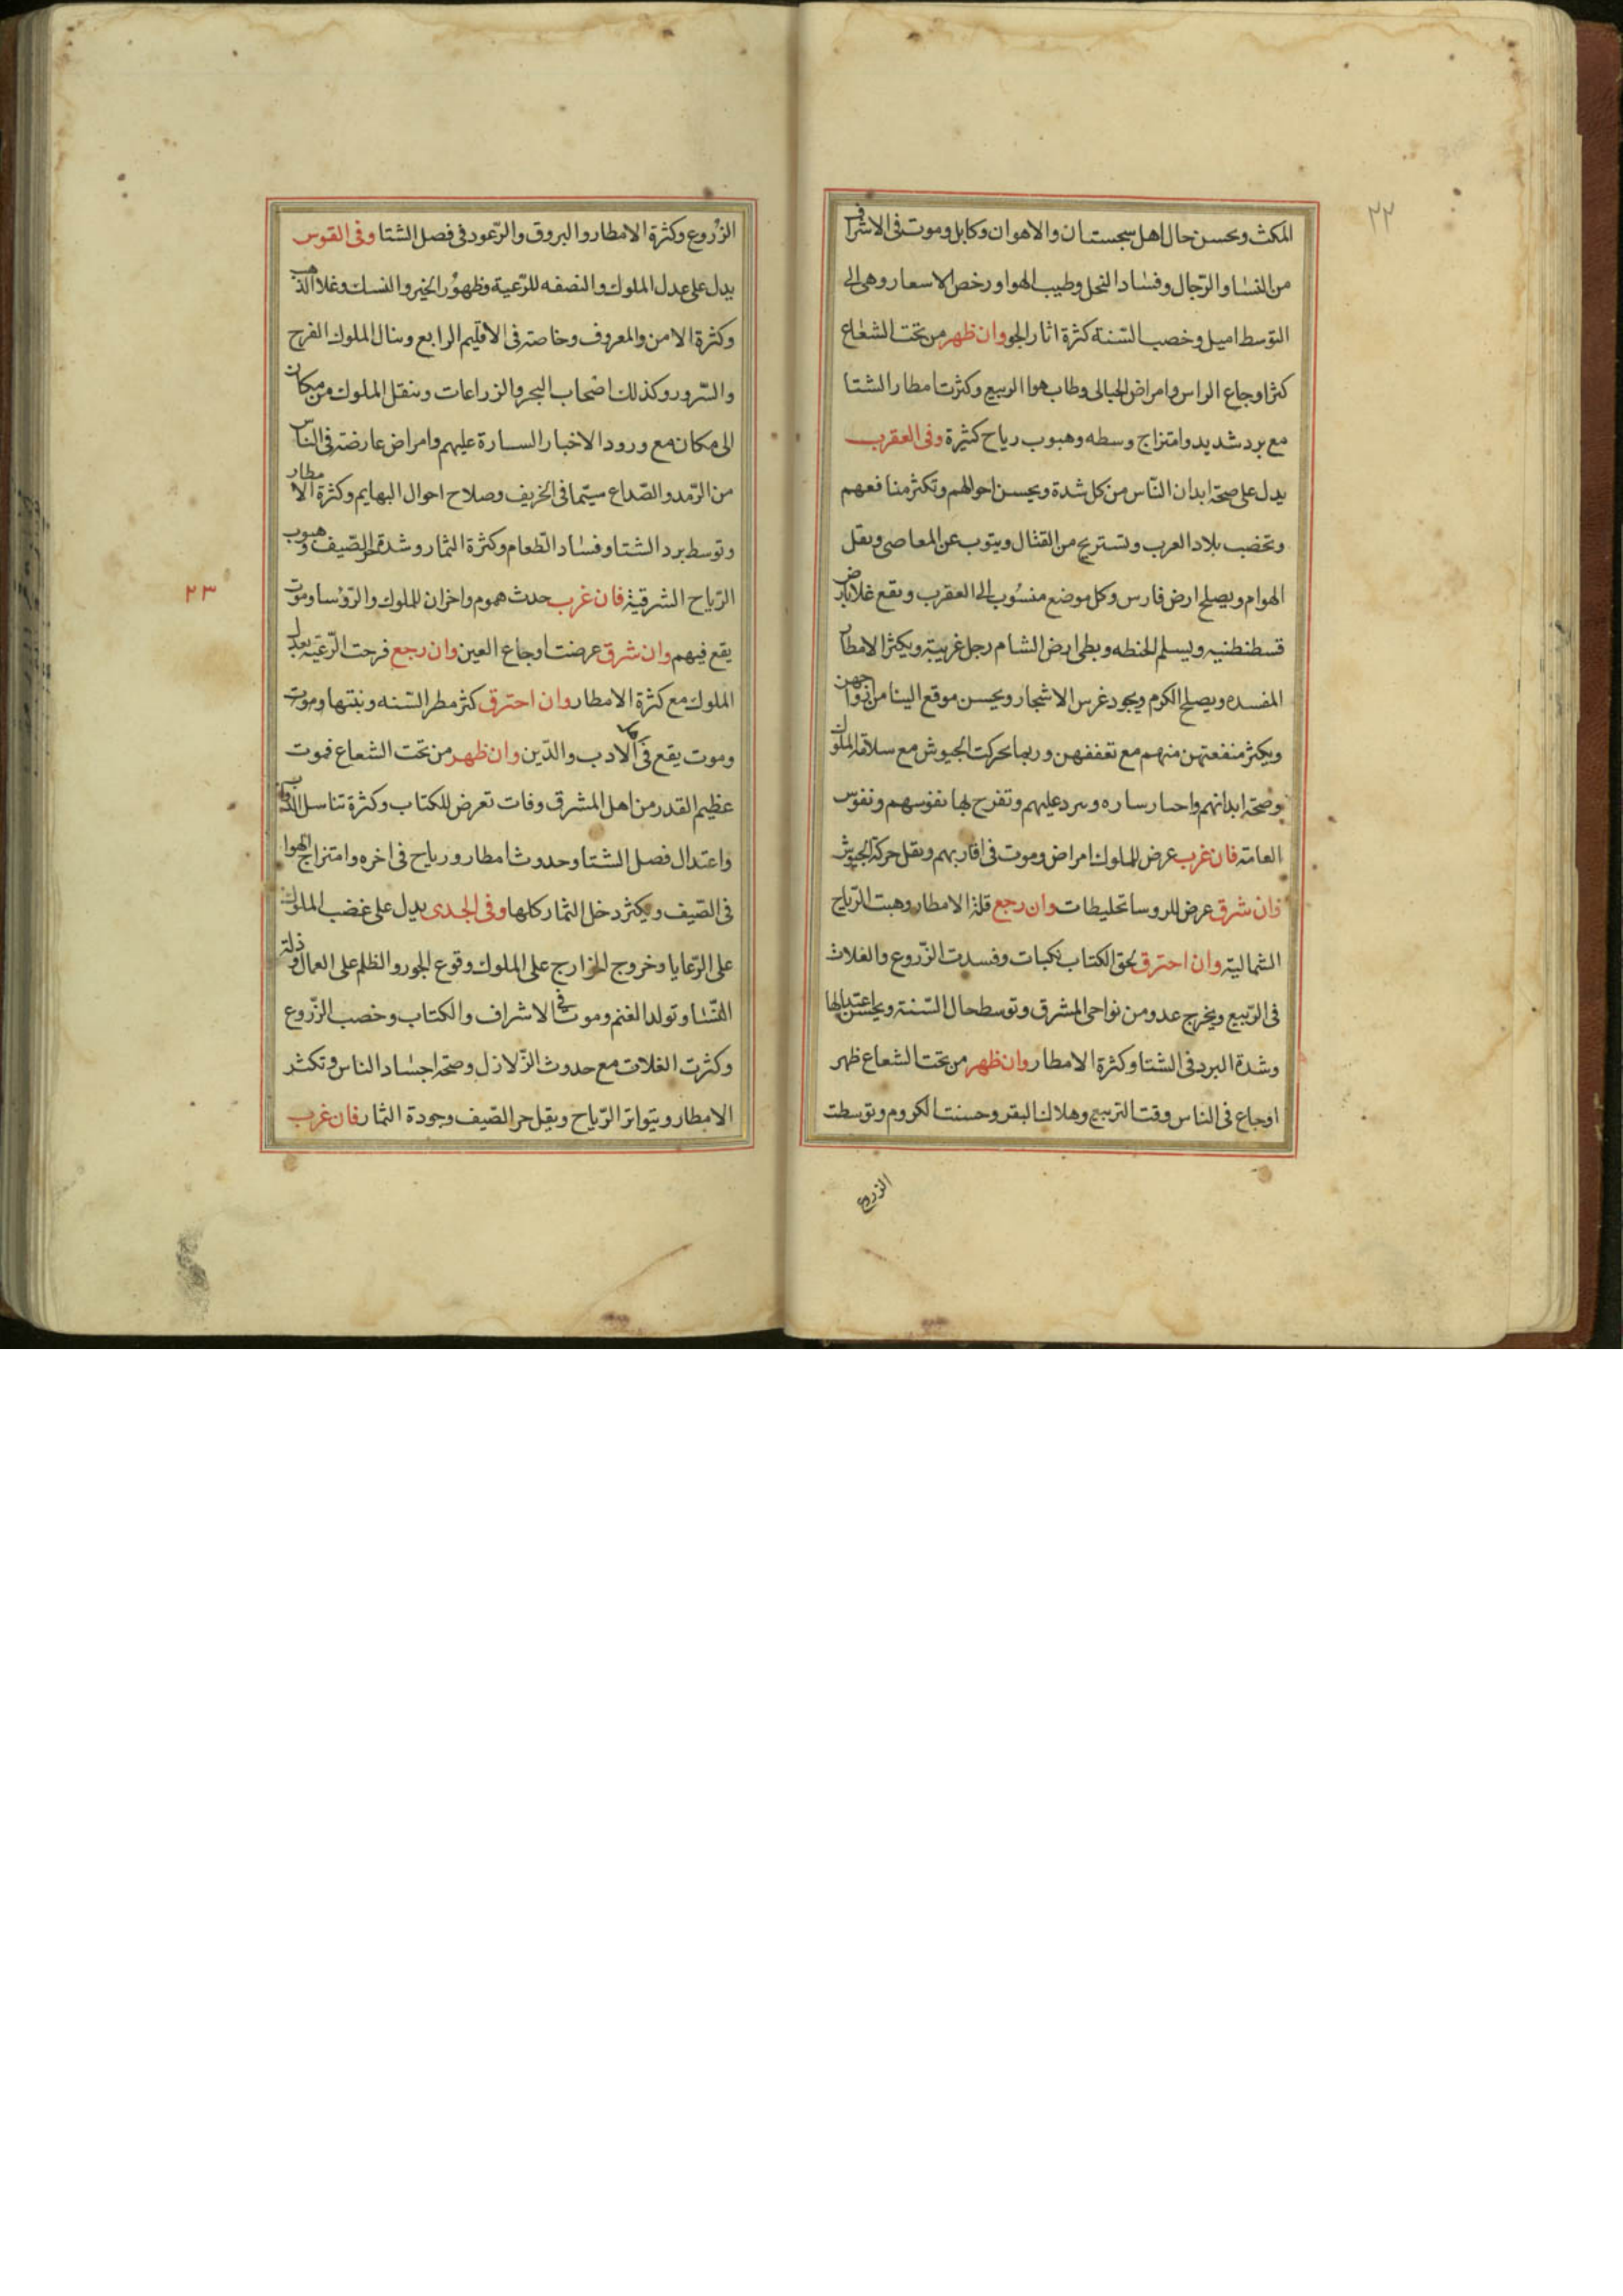 ٢٢
المكث ويحسن حال اهل سجستان والاهوان وكابل وموت فى الاشراف
من النسا والرّجال وفساد النحل وطيب الهوا ورخص الاسعار وهى الى
التوسط اميل وخصب السّنة كثرة اثار الجو وان ظهر من تحت الشعاع
كثر اوجاع الراس وامراض الحبالى وطاب هوا الربيع وكثرت امطار الشتا
مع برد شديد وامتزاج وسطه وهبوب رياح كثيرة وفى العقرب
يدل على صحة ابدان النّاس من كل شدة ويحسن احوالهم وتكثر منافعهم
وتخصب بلاد العرب وتستريح من القتال ويتوب عن المعاصى ويقل
الهوام ويصلح ارض فارس وكل موضع منسوب الى العقرب ويقع غلا بارض
قسطنطنيه ويسلم الحنطه ويطى ارض الشام رجل غريبة ويكثر الامطار
المفسده ويصلح الكرم ويجود غرس الاشجار ويحسن موقع النسا من ازواجهن
ويكثر منفعتهن منهم مع تعففهن وربما تحركت الجيوش مع سلاقة الملوك
وصحة ابدانهم واخبار ساره وسرد عليهم وتفرح بها نفوسهم ونفوس
العامة فان غرب عرض للملوك امراض وموت فى اقاربهم ويقل حركة الجيوش
فان شرق عرض للروسا تخليطات وان رجع قلة الامطار وهبت الرّياح
الشمالية وان احترق لحق الكتاب نكبات وفسدت الزّروع والغلات
فى الرّبيع ويخرج عدو من نواحى المشرق وتوسط حال السّنة ويحسن اعتدالها
وشدة البرد فى الشتا وكثرة الامطار وان ظهر من تحت الشعاع ظهر
اوجاع فى الناس وقت التربيع وهلاك البقر وحسنت الكروم وتوسطت
الزروع
الزّروع وكثرة الامطار والبروق والرّعود فى فصل الشتا وفى القوس
يدل على عدل الملوك والنصفه للرّعية وظهور الخير والنسك وغلا الذهب
وكثرة الامن والمعروف وخاصة فى الاقليم الرابع وينال الملوك الفرح
والسّرور وكذلك اصحاب البحر والزراعات وينقل الملوك من مكان
الى مكان مع ورود الاخبار السارة عليهم وامراض عارضة فى الناس
من الرّمد والصّداع سيّما فى الخريف وصلاح احوال البهايم وكثرة الامطار
وتوسط برد الشتا وفساد الطعام وكثرة الثمار وشدة حر الصّيف وهبوب
الرّياح الشرقية فان غرب حدث هموم واحزان للملوك والرّؤسا وموت
يقع فيهم وان شرق عرضت اوجاع العين وان رجع فرحت الرّعيّة بعدل
الملوك مع كثرة الامطار وان احترق كثر مطر السّنه ونبتها وموت
وموت يقع فى الادب والدّين وان ظهر من تحت الشعاع فموت
عظيم القدر من اهل المشرق وفات تعرض للكتاب وكثرة تناسل الدواب
واعتدال فصل الشتا وحدوث امطار ورياح فى اخره وامتزاج الهوا
فى الصّيف ويكثر دخل الثمار كلها وفى الجدى يدل على غضب الملوك
على الرّعايا وخروج الخوارج على الملوك وقوع الجور والظلم على العمال وذلة
النّسا وتولد الغنم وموت فى الاشراف والكتاب وخصب الزّروع
وكثرت الغلات مع حدوث الزّلازل وصحة اجساد الناس وتكثر
الامطار ويتواتر الرّياح ويقل حر الصّيف وجودة الثمار فان غرب
٢٣